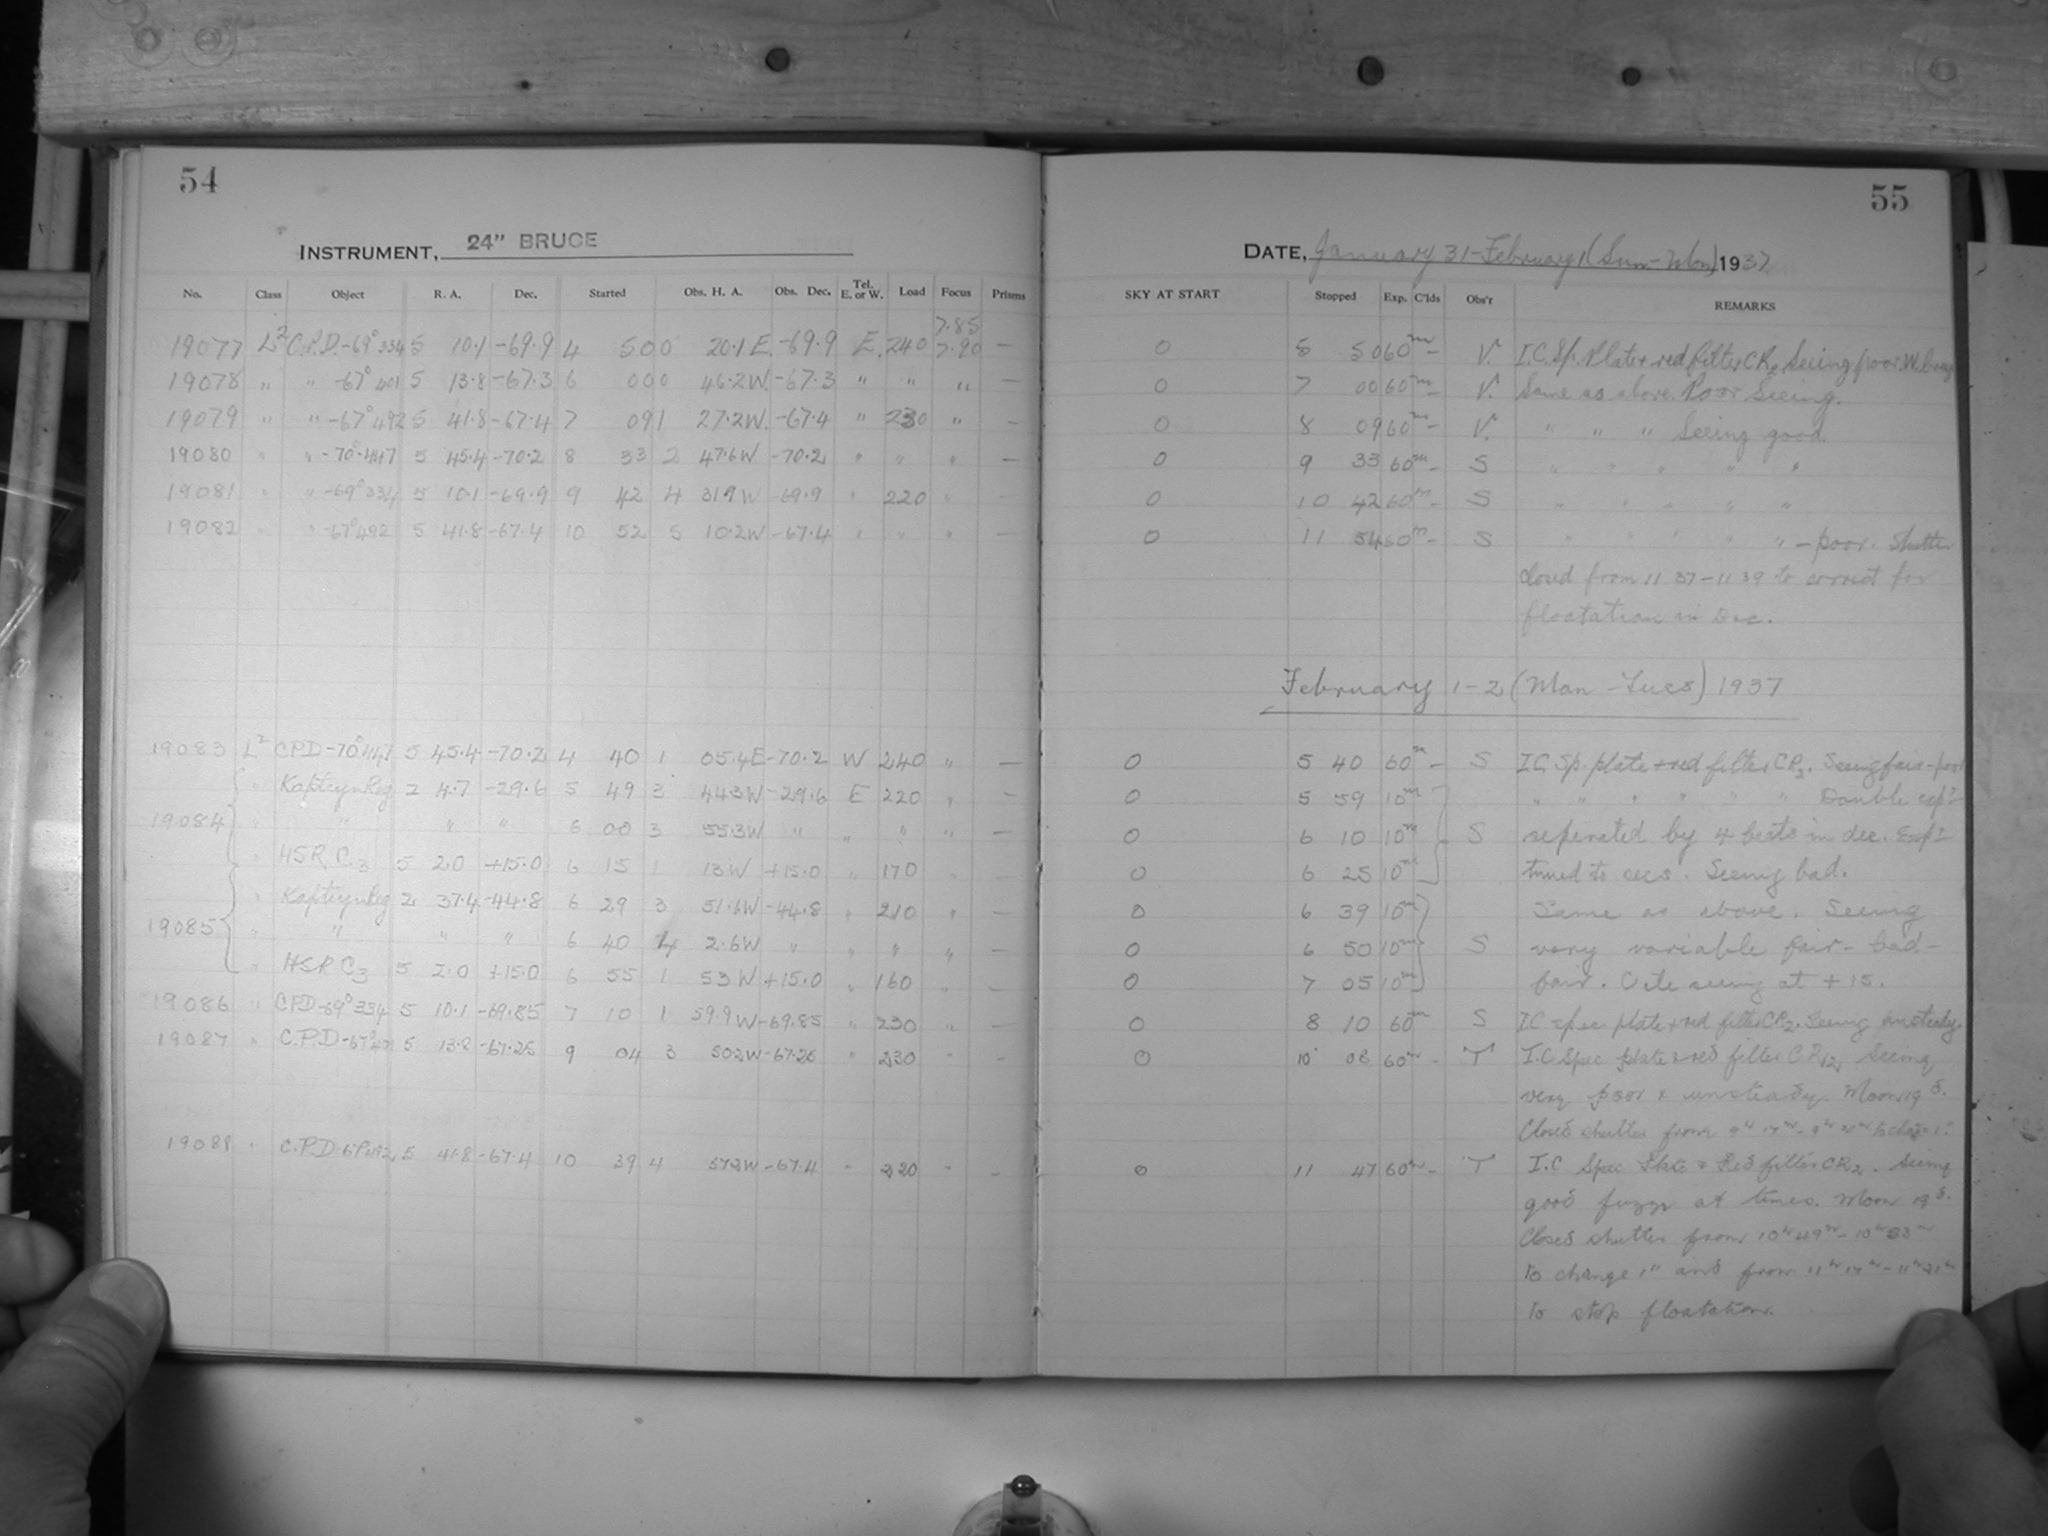 54
INSTRUMENT, 24" BRUCE
No. Class Object R. A. Dec. Started Obs. H. A. Obs. Dec. Tel. E. or W. Load Focus Prisms
7.85
19077 L2 C.P.D. -69° 334 5 10.1 -69.9 4 50 0 20.1 E. -69.9 E. 240 7.90 —
19078 " " -67° 401 5 13.8 -67.3 6 00 0 46.2W. -67.3 " " " —
19079 " " -67° 492 5 41.8 -67.4 7 09 1 27.2W. -67.4 " 230 " —
19080 " " -70° 447 5 45.4 -70.2 8 33 2 47.6W -70.2 " " " —
19081 " " -69° 334 5 10.1 -69.9 9 42 4 31.9W -69.9 " 220 " —
19082 " " -67° 492 5 41.8 -67.4 10 52 5 10.2W -67.4 " " " —
19083 L2 CPD -70° 447 5 45.4 -70.2 4 40 1 05.4E -70.2 W 240 " —
" Kapteyn Reg 2 4.7 -29.6 5 49 3 44.3W -29.6 E 220 " —
19084 " " " " 6 00 3 55.3W " " " " —
" HSR C3 5 2.0 +15.0 6 15 1 13W +15.0 " 170 " —
" Kapteyn Reg 2 37.4 -44.8 6 29 3 51.6W -44.8 " 210 " —
19085 " " " " 6 40 4 2.6W " " " " —
" HSR C3 5 2.0 +15.0 6 55 1 53W +15.0 " 160 " —
19086 " CPD -69° 334 5 10.1 -69.85 7 10 1 59.9W -69.85 " 230 " —
19087 " C.P.D -67° 5 13.8 -67.25 9 04 3 50.2W -67.25 " 230 " —
19088 " C.P.D 67° 492 5 41.8 -67.4 10 39 4 57.2W -67.4 " 220 " —
55
DATE, January 31-February 1 (Sun-Mon) 1937
SKY AT START Stopped Exp. C'lds Obs'r REMARKS
0 5 50 60m — V. I.C. Sp. Plate + red filter CR2 Seeing poor.
0 7 00 60m — V. Same as above. Poor Seeing.
0 8 09 60m — V. " " " Seeing good.
0 9 33 60m — S " " " " "
0 10 42 60m — S " " " " "
0 11 54 60m — S " " " " " — poor. Shutter
closed from 11 37 - 11 39 to correct for
floatation in Dec.
February 1-2 (Mon - Tues) 1937
0 5 40 60m — S I.C. Sp. plate + red filter CR2. Seeing fair-poor
0 5 59 10m " " " " " " Double exps
0 6 10 10m S seperated by 4 beats in dec. Exps
0 6 25 10m timed to secs. Seeing bad.
0 6 39 10m Same as above. Seeing
0 6 50 10m S very variable fair - bad -
0 7 05 10m fair. Vile seeing at +15.
0 8 10 60m S IC spec plate + red filter CR2. Seeing unsteady.
0 10 08 60m — T I.C Spec plate & red filter CR2, Seeing
very poor & unsteady. Moon 19d.
Closed shutter from
0 11 47 60m — T I.C Spec Plate & Red filter CR2. Seeing
good fuzzy at times. Moon 19d.
Closed shutter from 10h 49m - 10h 53m
to change 1" and from 11h 17m - 11h 21m
to stop floatation.